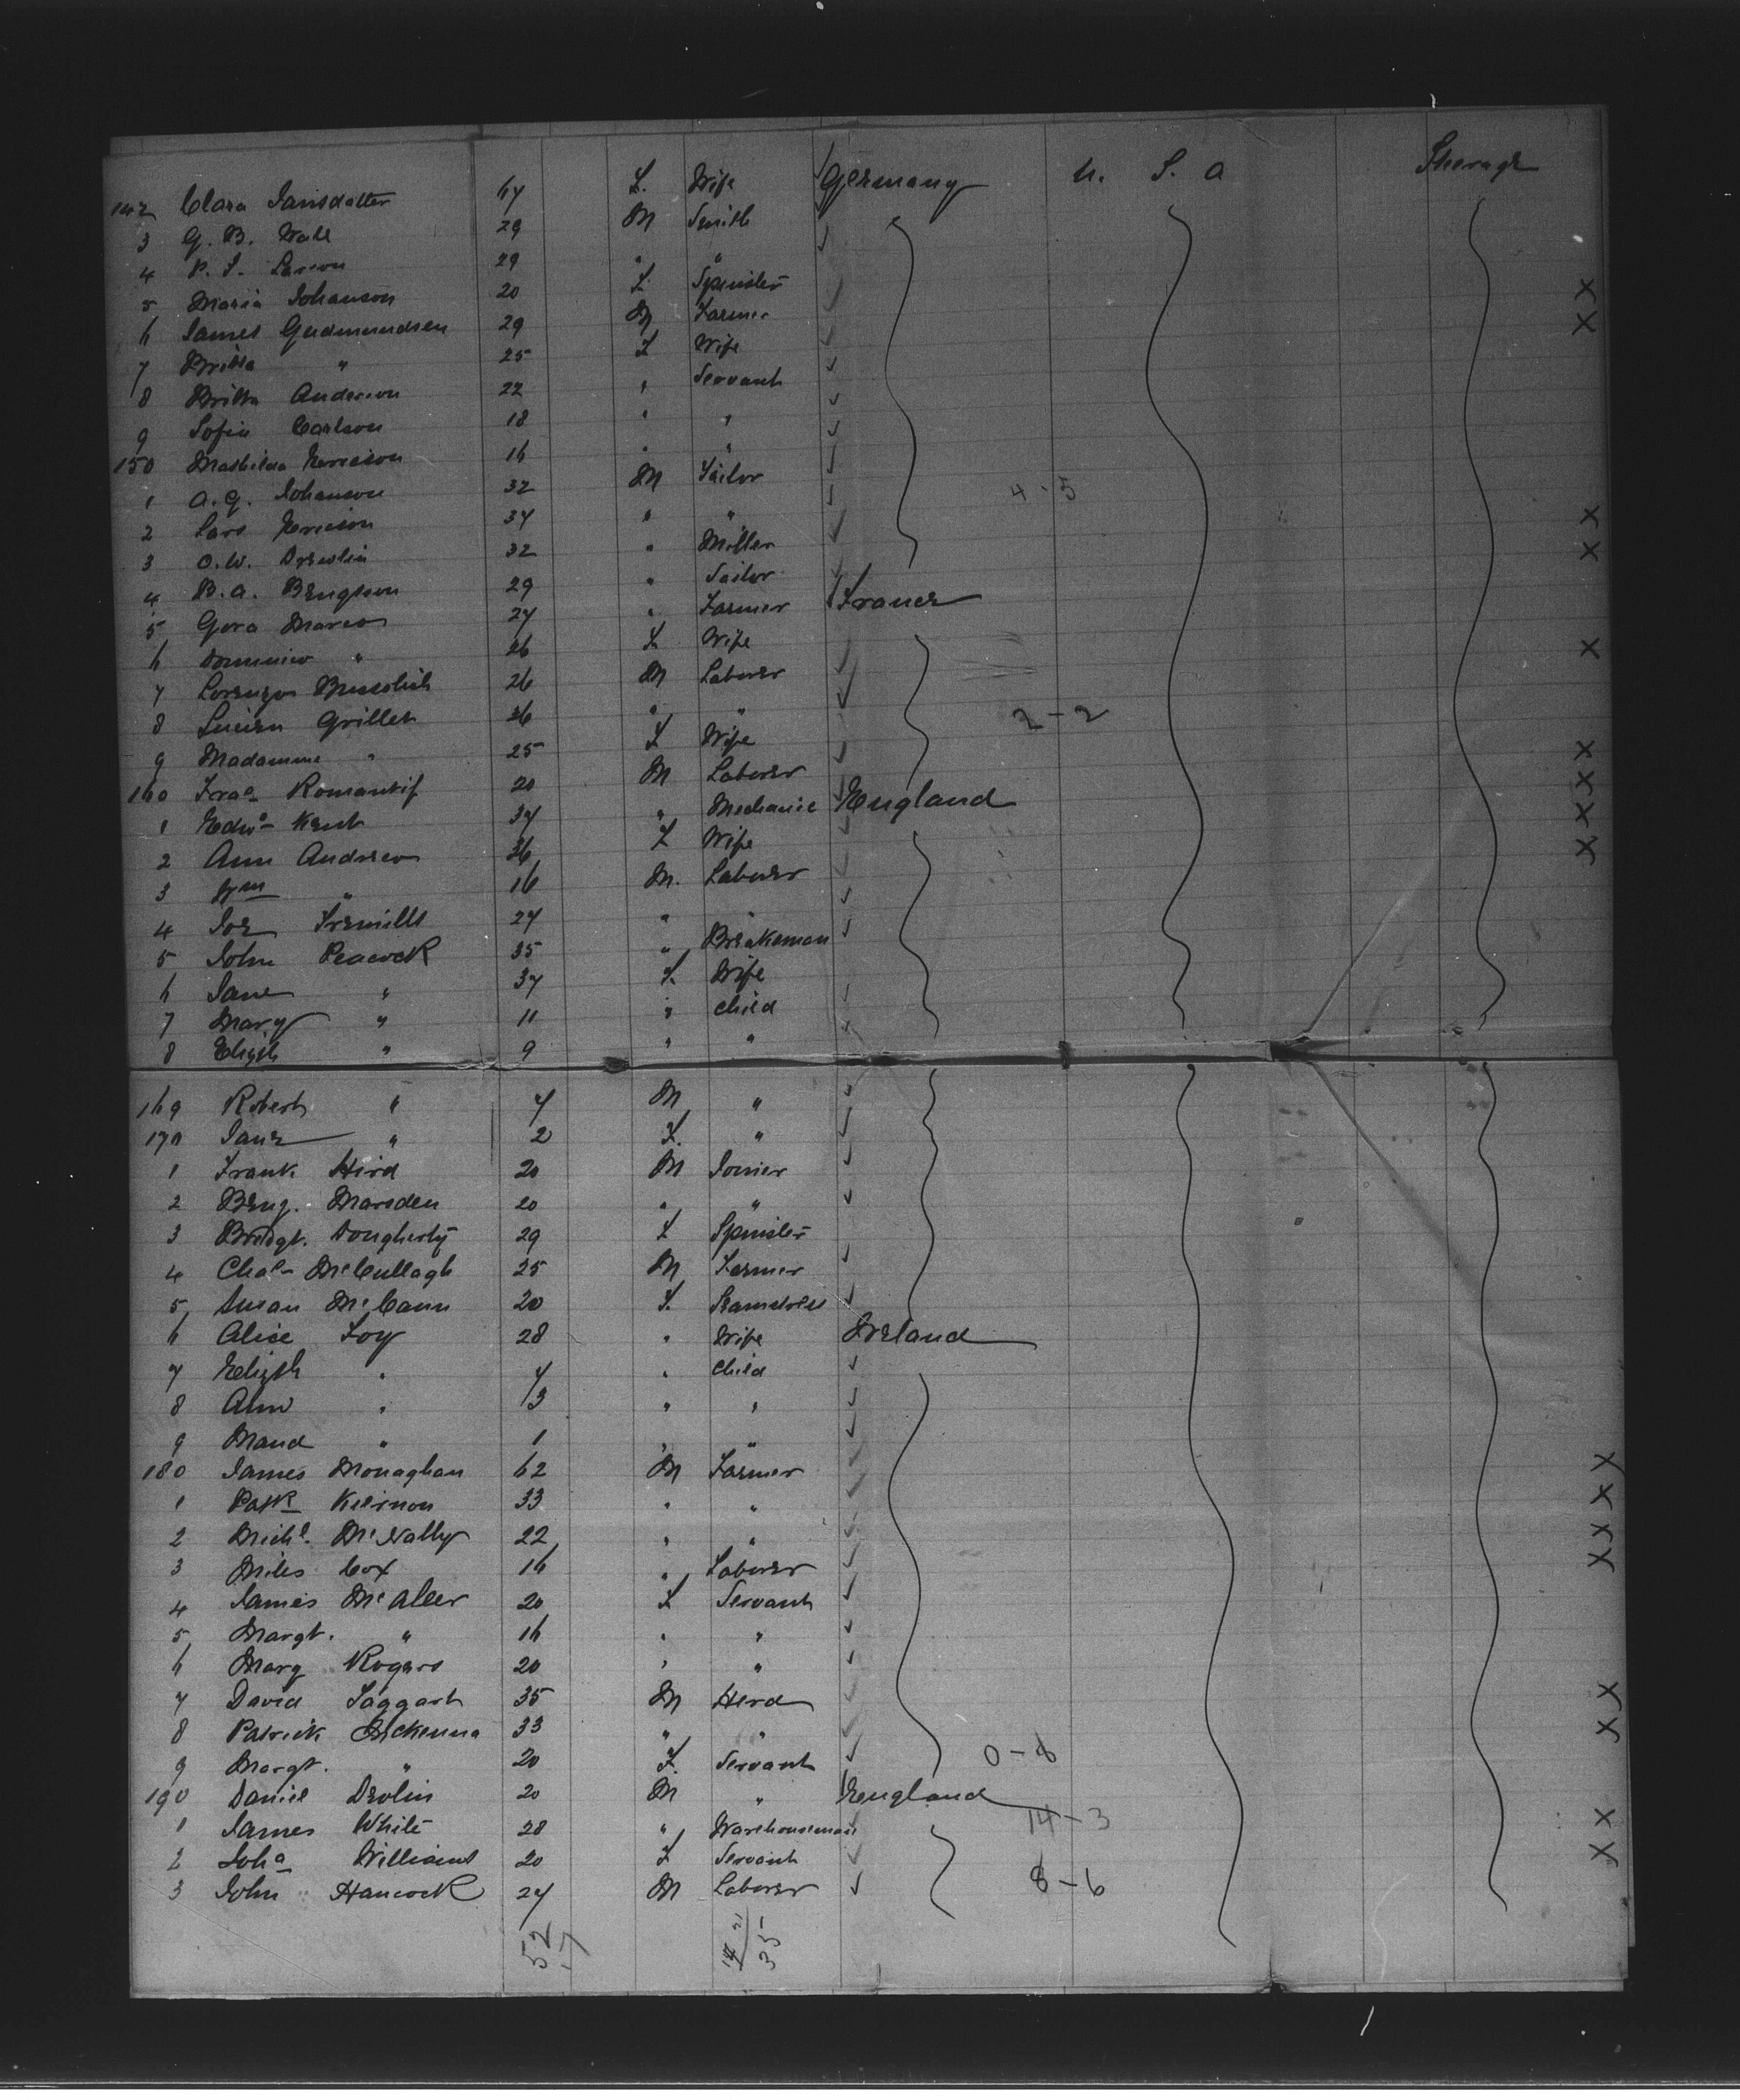 142 Clara Jansdatter 67 F. Wife Germany U. S. A Steerage
3 G. B. Wall 29 M Smith
4 P. S. Larson 29 " "
5 Maria Johanson 20 F. Spinster
6 James Gudmundsen 29 M Farmer
7 Britta " 25 F Wife
8 Britta Anderson 22 " Servant
9 Sofia Carlson 18 " "
150 Mathilda 16 " "
1 A. G. Johanson 32 M Tailor 4-5
2 Lars Ericson 34 " "
3 O. W. 32 " Miller
4 B. A. Bengtson 29 " Sailor
5 Gora Marco 27 " Farmer France
6 " 26 F. Wife
7 Lorenzo 26 M Laborer
8 Lucien Grillet 36 " " 2-2
9 Madamme " 25 F Wife
160 Romantif 20 M Laborer
1 Edwd Kent 37 " Mechanic England
2 Ann Andrew 36 F Wife
3 Wm " 16 M. Laborer
4 Joe Tremills 27 " "
5 John Peacock 35 " Breaksman
6 Jane " 37 F. Wife
7 Mary " 11 " child
8 Elizth " 9 " "
169 Robert " 7 M "
170 Jane " 2 F. "
1 Frank Hird 20 M Joiner
2 Benj. Marsden 20 " "
3 Bridgt. Dougherty 29 F Spinster
4 Chas McCullagh 25 M Farmer
5 Susan McCann 20 F. Seamstress
6 Alice Foy 28 " Wife Ireland
7 Elizth " 7 " child
8 Ann " 3 " "
9 Maud " 1 " "
180 James Monaghan 62 M Farmer
1 Patk Kiernon 33 " "
2 Michl. McNally 22 " "
3 Miles Cox 16 " Laborer
4 James McAleer 20 F Servant
5 Margt. " 16 " "
6 Mary Rogers 20 " "
7 David Taggart 35 M Herd
8 Patrick McKenna 33 " "
9 Margt. " 20 F. Servant 0-8
190 Daniel Devlin 20 M " England
1 James White 28 " Warehouseman 14-3
2 Joha Williams 20 F Servant
3 John Hancock 27 M Laborer 8-6
52 14/21
17 35